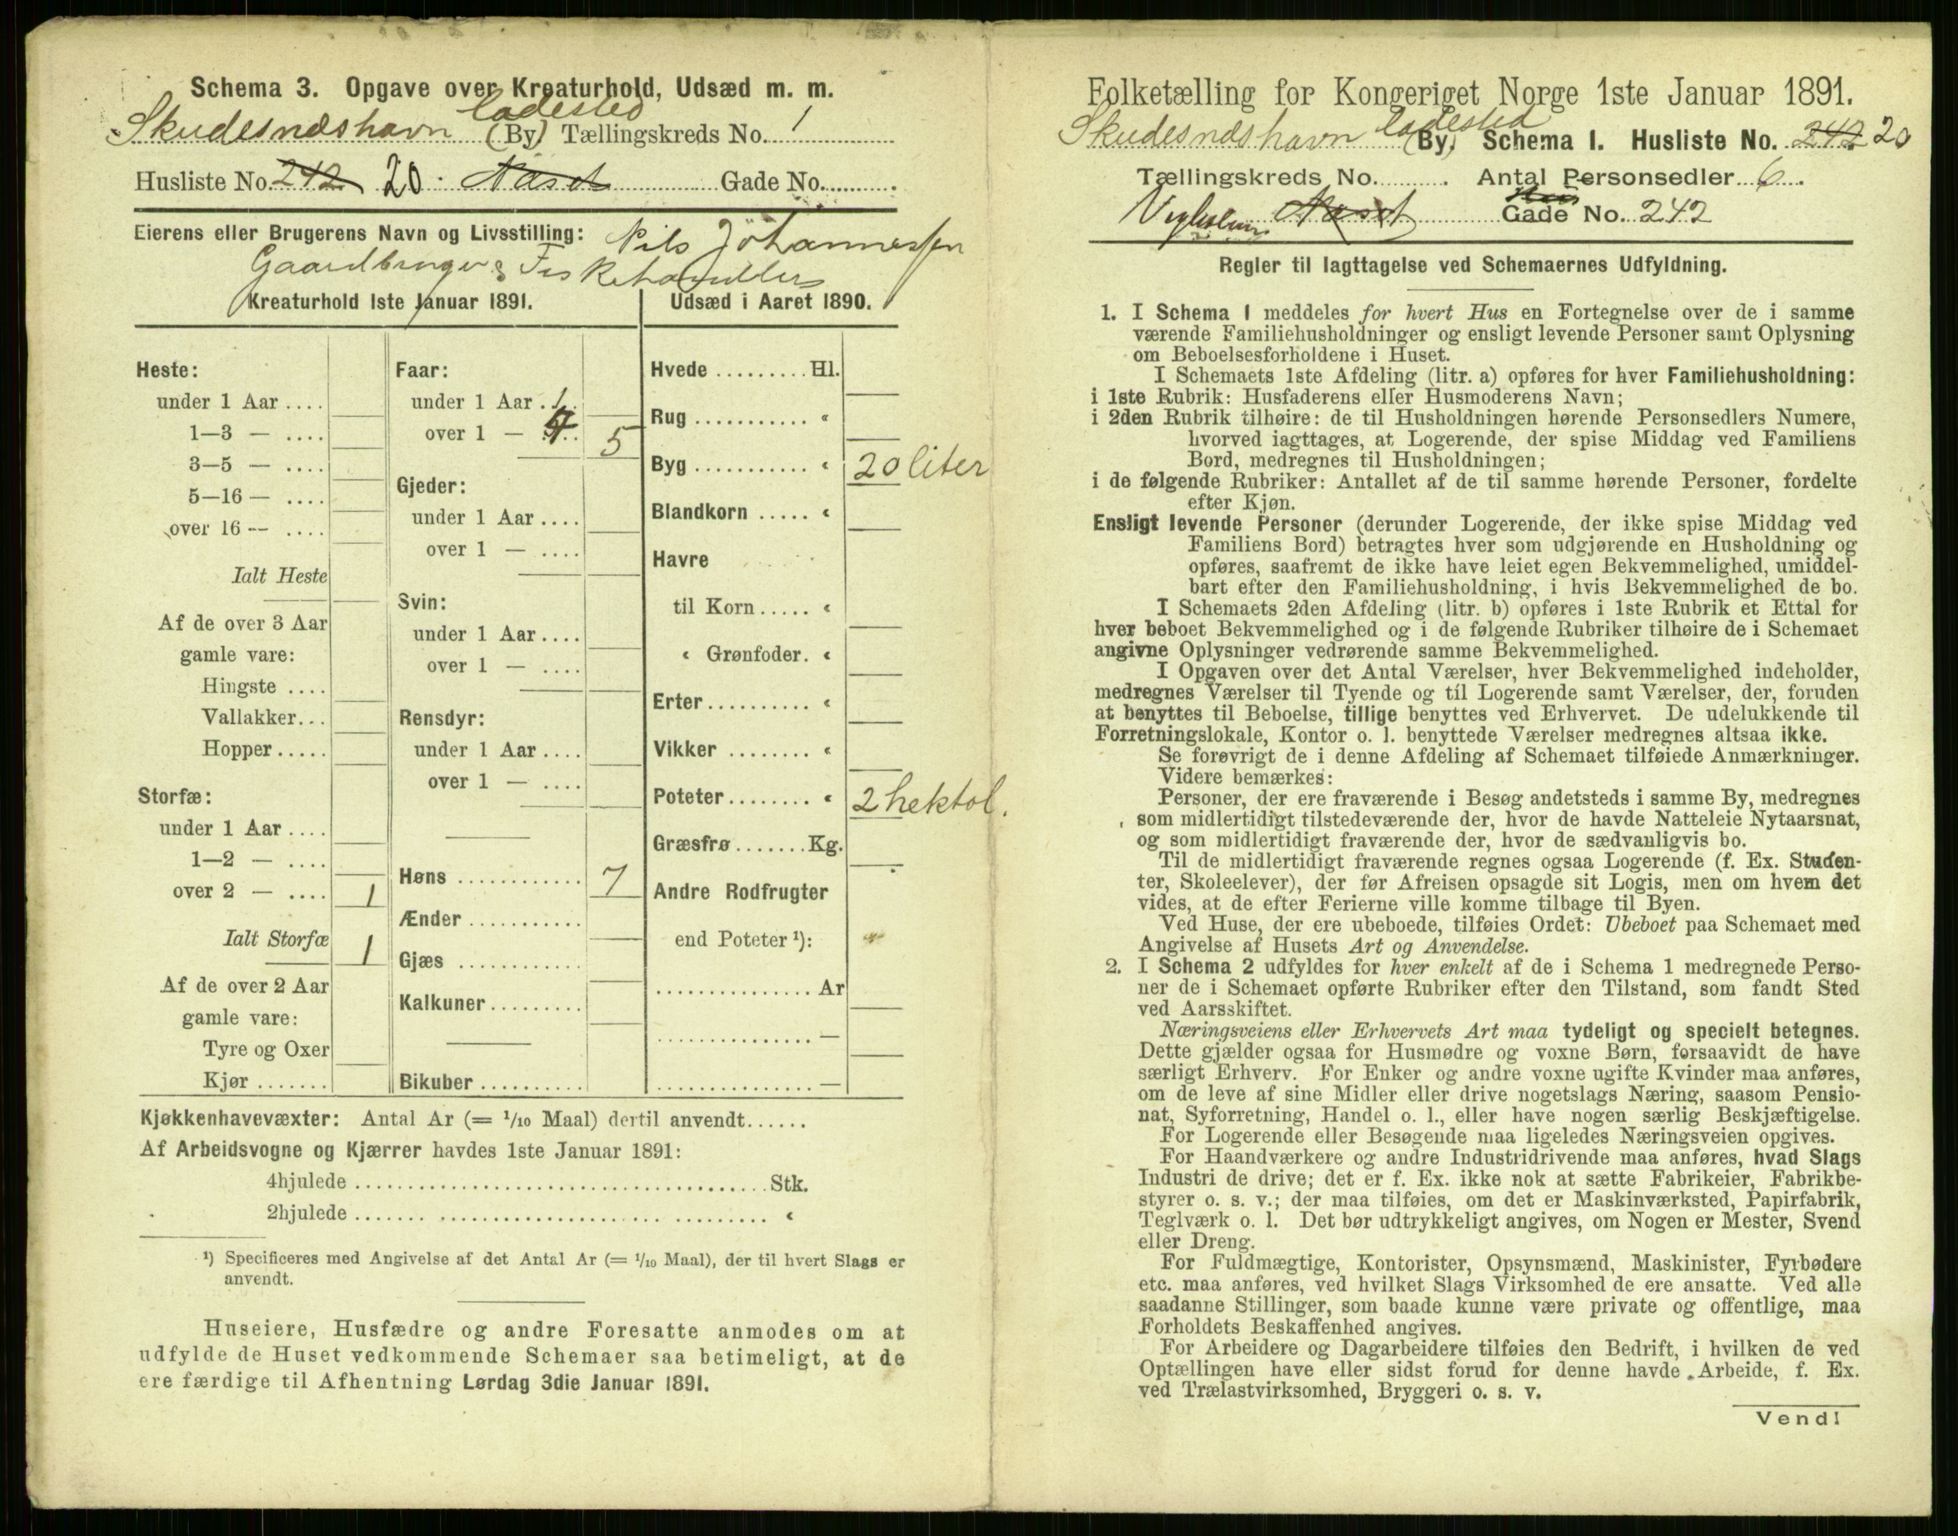 Schema 3. Opgave over Kreaturhold, Udsæd m. m.
Skudesnæshavn ladested (By) Tællingskreds No. 1
Husliste No. 242 20. Aaset Gade No. .
Eierens eller Brugerens Navn og Livsstilling: Nils Johannessen
Gaardbruger, Fiskehandler
Kreaturhold 1ste Januar 1891.
Heste:
under 1 Aar ....
1—3 — ....
3—5 — ....
5—16 — ....
over 16 — ....
Ialt Heste
Af de over 3 Aar
gamle vare:
Hingste ....
Vallakker...
Hopper.....
Storfæ:
under 1 Aar ....
1—2 — ....
over 2 — .... 1
Ialt Storfæ 1
Af de over 2 Aar
gamle vare:
Tyre og Oxer
Kjør .......
Faar:
under 1 Aar . 1.
over 1 — 4 5
Gjeder:
under 1 Aar ....
over 1 — ....
Svin:
under 1 Aar ....
over 1 — ....
Rensdyr:
under 1 Aar ....
over 1 — ....
Høns ............ 7
Ænder ...........
Gjæs ............
Kalkuner.........
Bikuber ..........
Udsæd i Aaret 1890.
Hvede ......... Hl.
Rug ........... «
Byg ........... « 20 liter
Blandkorn ..... «
Havre
til Korn ..... «
« Grønfoder. «
Erter.......... «
Vikker ........ «
Poteter........ « 2 hektol.
Græsfrø ....... Kg.
Andre Rodfrugter
end Poteter ¹):
............... Ar
............... —
............... —
Kjøkkenhavevæxter: Antal Ar (= 1/10 Maal) dertil anvendt......
Af Arbeidsvogne og Kjærrer havdes 1ste Januar 1891:
4hjulede ........................................ Stk.
2hjulede ........................................ «
¹) Specificeres med Angivelse af det Antal Ar (= 1/10 Maal), der til hvert Slags er
anvendt.
Huseiere, Husfædre og andre Foresatte anmodes om at
udfylde de Huset vedkommende Schemaer saa betimeligt, at de
ere færdige til Afhentning Lørdag 3die Januar 1891.
Folketælling for Kongeriget Norge 1ste Januar 1891.
Skudesnæshavn ladested (By) Schema I. Husliste No. 242 20
Tællingskreds No. . Antal Personsedler 6.
Aaset Hus Gade No. 242
Regler til Iagttagelse ved Schemaernes Udfyldning.
1. I Schema I meddeles for hvert Hus en Fortegnelse over de i samme
værende Familiehusholdninger og ensligt levende Personer samt Oplysning
om Beboelsesforholdene i Huset.
I Schemaets 1ste Afdeling (litr. a) opføres for hver Familiehusholdning:
i 1ste Rubrik: Husfaderens eller Husmoderens Navn;
i 2den Rubrik tilhøire: de til Husholdningen hørende Personsedlers Numere,
hvorved iagttages, at Logerende, der spise Middag ved Familiens
Bord, medregnes til Husholdningen;
i de følgende Rubriker: Antallet af de til samme hørende Personer, fordelte
efter Kjøn.
Ensligt levende Personer (derunder Logerende, der ikke spise Middag ved
Familiens Bord) betragtes hver som udgjørende en Husholdning og
opføres, saafremt de ikke have leiet egen Bekvemmelighed, umiddel-
bart efter den Familiehusholdning, i hvis Bekvemmelighed de bo.
I Schemaets 2den Afdeling (litr. b) opføres i 1ste Rubrik et Ettal for
hver beboet Bekvemmelighed og i de følgende Rubriker tilhøire de i Schemaet
angivne Oplysninger vedrørende samme Bekvemmelighed.
I Opgaven over det Antal Værelser, hver Bekvemmelighed indeholder,
medregnes Værelser til Tyende og til Logerende samt Værelser, der, foruden
at benyttes til Beboelse, tillige benyttes ved Erhvervet. De udelukkende til
Forretningslokale, Kontor o. l. benyttede Værelser medregnes altsaa ikke.
Se forøvrigt de i denne Afdeling af Schemaet tilføiede Anmærkninger.
Videre bemærkes:
Personer, der ere fraværende i Besøg andetsteds i samme By, medregnes
som midlertidigt tilstedeværende der, hvor de havde Natteleie Nytaarsnat,
og som midlertidigt fraværende der, hvor de sædvanligvis bo.
Til de midlertidigt fraværende regnes ogsaa Logerende (f. Ex. Studen-
ter, Skoleelever), der før Afreisen opsagde sit Logis, men om hvem det
vides, at de efter Ferierne ville komme tilbage til Byen.
Ved Huse, der ere ubeboede, tilføies Ordet: Ubeboet paa Schemaet med
Angivelse af Husets Art og Anvendelse.
2. I Schema 2 udfyldes for hver enkelt af de i Schema 1 medregnede Perso-
ner de i Schemaet opførte Rubriker efter den Tilstand, som fandt Sted
ved Aarsskiftet.
Næringsveiens eller Erhvervets Art maa tydeligt og specielt betegnes.
Dette gjælder ogsaa for Husmødre og voxne Børn, forsaavidt de have
særligt Erhverv. For Enker og andre voxne ugifte Kvinder maa anføres,
om de leve af sine Midler eller drive nogetslags Næring, saasom Pensio-
nat, Syforretning, Handel o. l., eller have nogen særlig Beskjæftigelse.
For Logerende eller Besøgende maa ligeledes Næringsveien opgives.
For Haandværkere og andre Industridrivende maa anføres, hvad Slags
Industri de drive; det er f. Ex. ikke nok at sætte Fabrikeier, Fabrikbe-
styrer o. s. v.; der maa tilføies, om det er Maskinværksted, Papirfabrik,
Teglværk o. l. Det bør udtrykkeligt angives, om Nogen er Mester, Svend
eller Dreng.
For Fuldmægtige, Kontorister, Opsynsmænd, Maskinister, Fyrbødere
etc. maa anføres, ved hvilket Slags Virksomhed de ere ansatte. Ved alle
saadanne Stillinger, som baade kunne være private og offentlige, maa
Forholdets Beskaffenhed angives.
For Arbeidere og Dagarbeidere tilføies den Bedrift, i hvilken de ved
Optællingen have eller sidst forud for denne havde Arbeide, f. Ex.
ved Trælastvirksomhed, Bryggeri o. s. v.
Vend!